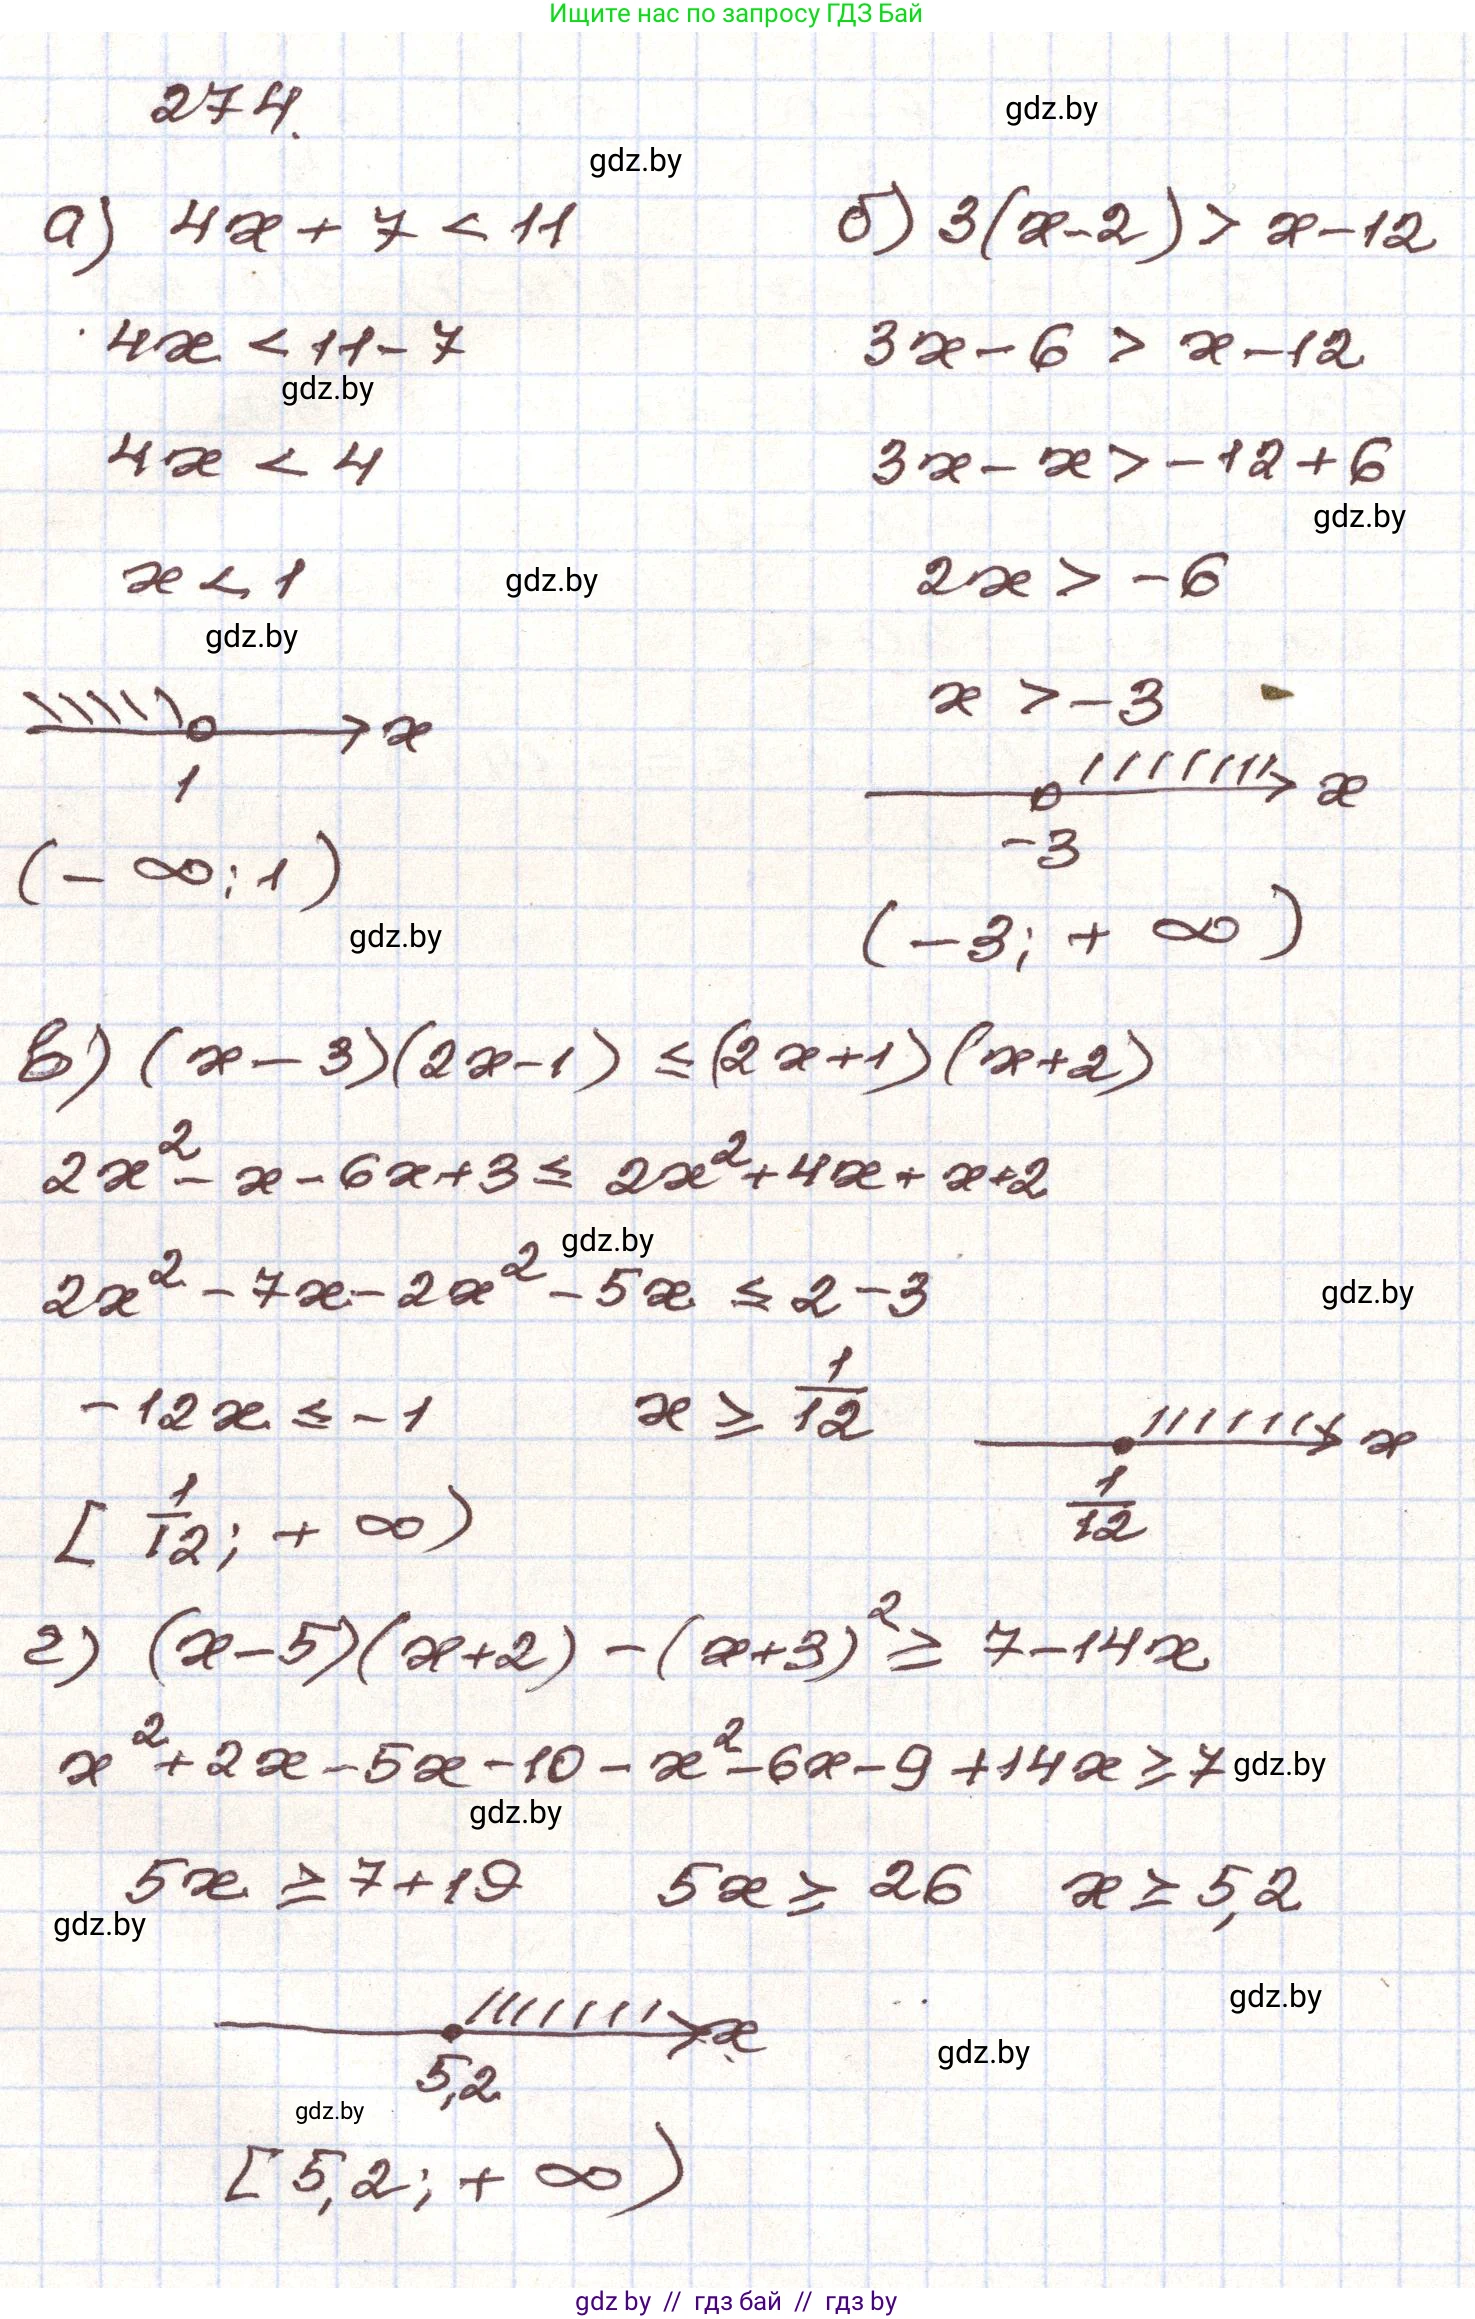 Ищите нас по запросу ГДЗ Бай
274.
gdz.by
gdz.by
а) 4x + 7 < 11
4x < 11 - 7
gdz.by
4x < 4
x < 1
gdz.by
gdz.by
x
1
(- ∞; 1)
gdz.by
б) 3(x-2) > x-12
3x - 6 > x - 12
3x - x > -12 + 6
gdz.by
2x > -6
x > -3
x
-3
(-3; + ∞)
в) (x - 3)(2x-1) ≤ (2x+1)(x+2)
2x² - x - 6x + 3 ≤ 2x² + 4x + x + 2
gdz.by
2x² - 7x - 2x² - 5x ≤ 2 - 3
gdz.by
-12x ≤ -1 x ≥ 1/12
x
1/12
[ 1/12; + ∞)
г) (x-5)(x+2) - (x+3)² ≥ 7 - 14x
x² + 2x - 5x - 10 - x² - 6x - 9 + 14x ≥ 7
gdz.by
gdz.by
5x ≥ 7 + 19 5x ≥ 26 x ≥ 5,2
gdz.by
gdz.by
x
gdz.by
5,2
gdz.by
[5,2; + ∞)
gdz by // гдз бай // гдз by